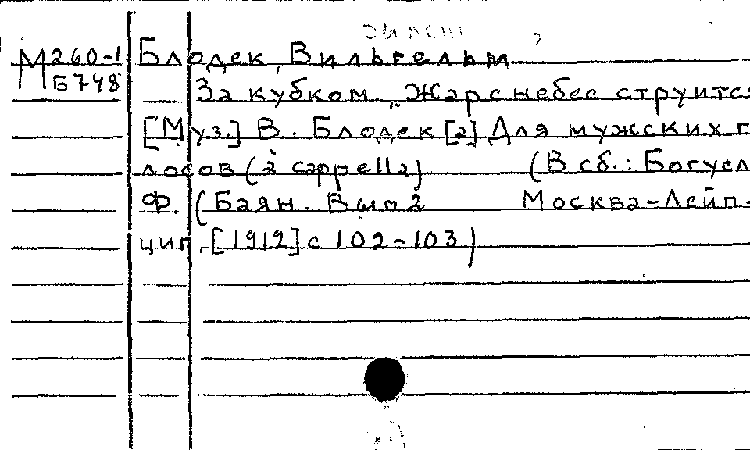 М 260-1 Блодек, Вильгельм
Б748
За кубком. „Жар с небес струится
[Муз.] В. Блодек[а] Для мужских г
лосов (à cappella) (В сб.: Богусл
Ф. (Баян. Вып 2 Москва-Лейп-
циг, [1912] с 102-103)